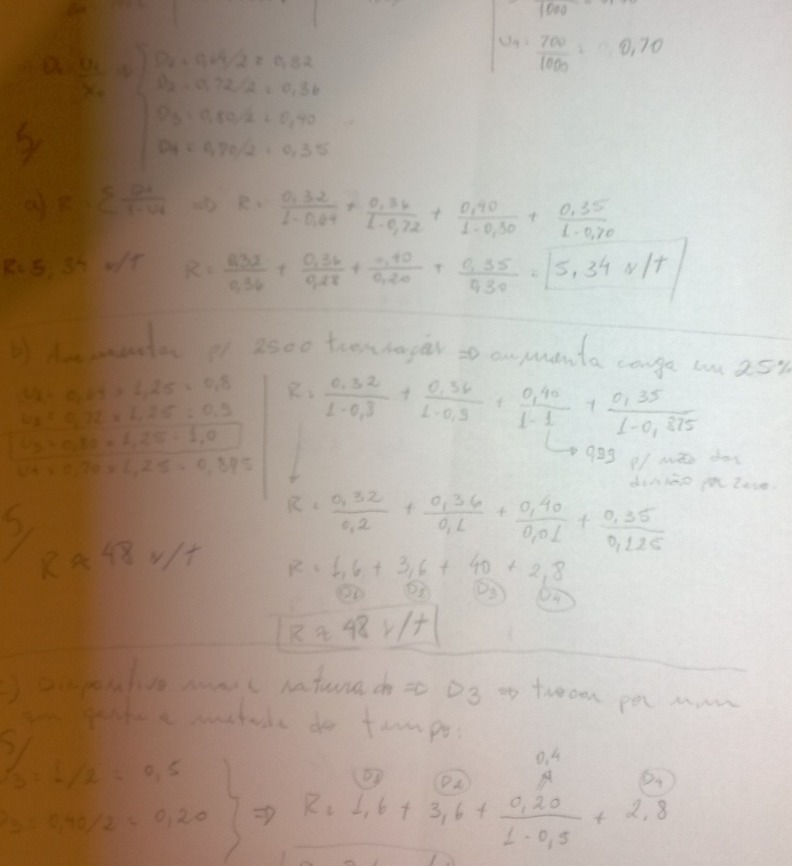 1000
U4 = 700/1000 = 0,70
Di = Ui/X0 => { D1 = 0,64/2 = 0,32
D2 = 0,72/2 = 0,36
D3 = 0,80/2 = 0,40
D4 = 0,70/2 = 0,35
5/
a) R = Σ Di/1-Ui => R = 0,32/1-0,64 + 0,36/1-0,72 + 0,40/1-0,80 + 0,35/1-0,70
R = 5,34 s/t R = 0,32/0,36 + 0,36/0,28 + 0,40/0,20 + 0,35/0,30 = 5,34 s/t
b) Aumentar p/ 2500 transações => aumenta carga em 25%
U1 = 0,64 x 1,25 = 0,8
U2 = 0,72 x 1,25 = 0,9
U3 = 0,80 x 1,25 = 1,0
U4 = 0,70 x 1,25 = 0,875
R = 0,32/1-0,8 + 0,36/1-0,9 + 0,40/1-1 + 0,35/1-0,875
→ 0,99 p/ não dar
divisão por zero.
R = 0,32/0,2 + 0,36/0,1 + 0,40/0,01 + 0,35/0,125
5/
R ≈ 48 s/t
R = 1,6 + 3,6 + 40 + 2,8
D1 D2 D3 D4
R ≈ 48 s/t
c) Dispositivo mais saturado => D3 => trocar por um
que gasta a metade do tempo:
5/
0,4
U3 = 1/2 = 0,5
D3 = 0,40/2 = 0,20 } => R = 1,6 + 3,6 + 0,20/1-0,5 + 2,8
D1 D2 D4